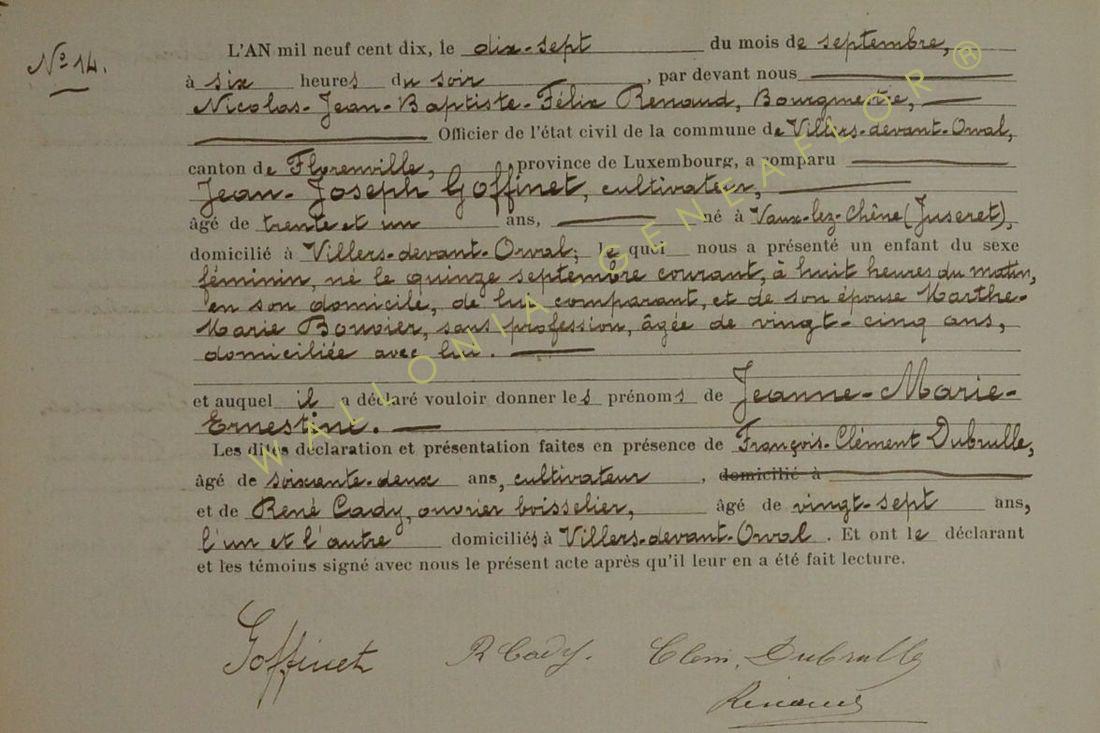 Nº 14.
L'AN mil neuf cent dix, le dix-sept du mois de septembre,
à six heures du soir, par devant nous
Nicolas-Jean-Baptiste-Félix Renaud, Bourgmestre,
Officier de l'état civil de la commune de Villers-devant-Orval,
canton de Florenville, province de Luxembourg, a comparu
Jean-Joseph Goffinet, cultivateur,
âgé de trente et un ans, né à Vaux-lez-Chêne (Juseret),
domicilié à Villers-devant-Orval; le quel nous a présenté un enfant du sexe
féminin, né le quinze septembre courant, à huit heures du matin,
en son domicile, de lui comparant, et de son épouse Marthe-
Marie Bouvier, sans profession, âgée de vingt-cinq ans,
domiciliée avec lui.
et auquel il a déclaré vouloir donner les prénoms de Jeanne-Marie-
Ernestine.
Les dites déclaration et présentation faites en présence de François-Clément Dubrulle,
âgé de soixante-deux ans, cultivateur, domicilié à
et de René Cady, ouvrier boisselier, âgé de vingt-sept ans,
l'un et l'autre domiciliés à Villers-devant-Orval. Et ont le déclarant
et les témoins signé avec nous le présent acte après qu'il leur en a été fait lecture.
Goffinet R Cady. Clém. Dubrulle
Renaud
WALLONIA-GENEAFLOR ®